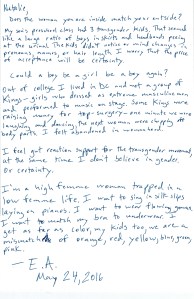 Natalie,
Does the woman you are inside match your outside?
My son's preschool class had 2 transgender kids. That sounds
like a large ratio of boys in skirts and husbands peeing
at the urinal. The kids didn't notice or mind changes in
pronouns, names, or hair length. I worry that the price
of acceptance will be certainty.
Could a boy be a girl be a boy again?
Out of college I lived in DC and met a group of
Kings — girls who dressed as extreme masculine men
and performed to music on stage. Some Kings were
raising money for top surgery — one minute we were
laughing and dancing the next women were chopping off
body parts. I felt abandoned in womanhood.
I feel gut reaction support for the transgender movement,
at the same time I don't believe in gender.
Or certainty.
I'm a high femme woman trapped in a
low femme life. I want to sing in silk slips
laying on pianos. I want to wear flowing gowns.
I want to match my bra to underwear. I
get as far as color, my kids too, we are a
mismatch of orange, red, yellow, blue, green,
pink.
— E.A.
May 24, 2016